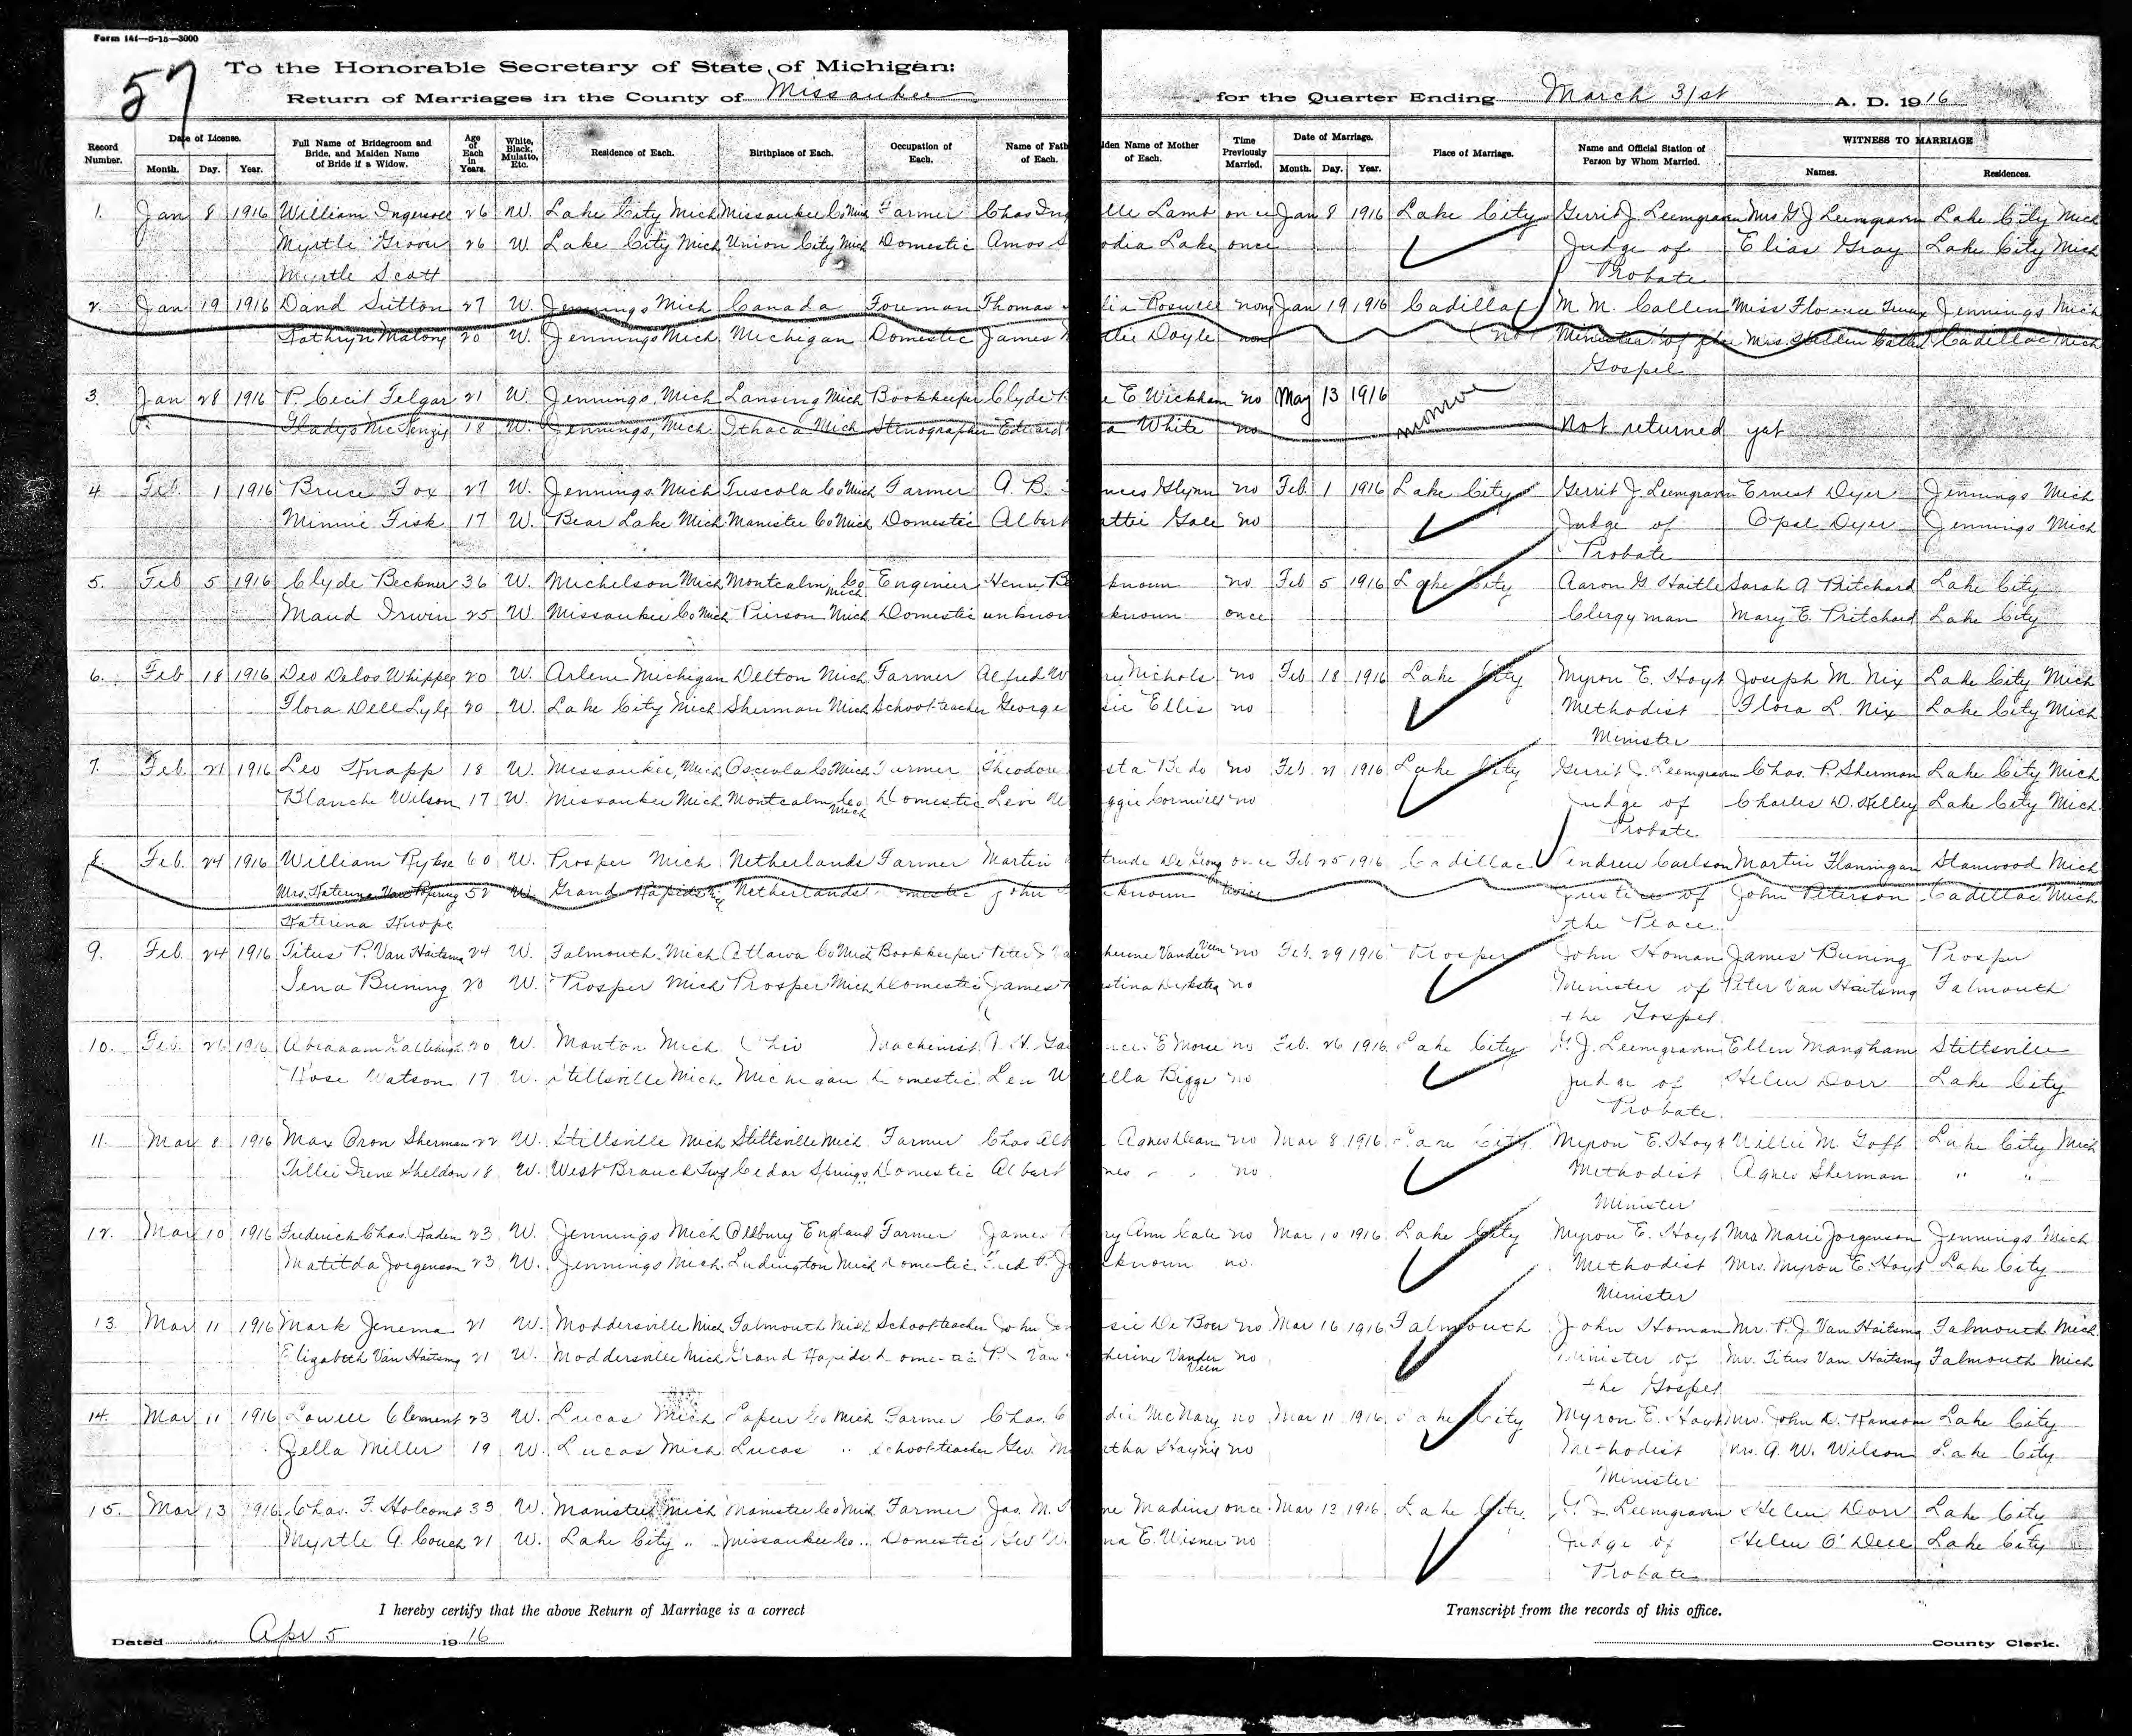 Form 141—5-15—3000
57
To the Honorable Secretary of State of Michigan:
Return of Marriages in the County of Missaukee for the Quarter Ending March 31st A. D. 1916
Record Number. Date of License. Month. Day. Year. Full Name of Bridegroom and Bride, and Maiden Name of Bride if a Widow. Age of Each in Years. White, Black, Mulatto, Etc. Residence of Each. Birthplace of Each. Occupation of Each. Name of Fath of Each. iden Name of Mother of Each. Time Previously Married. Date of Marriage. Month. Day. Year. Place of Marriage. Name and Official Station of Person by Whom Married. WITNESS TO MARRIAGE Names. Residences.
1. Jan 8 1916 William Ingersoll 26 W. Lake City Mich Missaukee Co Mich Farmer Chas Ing lle Lamb once Jan 8 1916 Lake City Gerrit J. Leemgraven Mrs G J Leemgraven Lake City Mich
Myrtle Groov 26 W. Lake City Mich Union City Mich Domestic Amos S odia Lake once Judge of Elias Gray Lake City Mich
Myrtle Scott Probate
2. Jan 19 1916 David Sutton 27 W. Jennings Mich Canada Foreman Thomas lia Roswell none Jan 19 1916 Cadillac M. M. Callen Miss Florence Jennings Mich
Kathryn Malone 20 W. Jennings Mich. Michigan Domestic James M ttie Doyle none (not Minister of the Mrs. Callen Cadillac Mich
Gospel
3. Jan 28 1916 P. Cecil Felgar 21 W. Jennings, Mich Lansing Mich Bookkeeper Clyde E Wickham no May 13 1916 monroe
Gladys McKenzie 18 W. Jennings, Mich. Ithaca Mich Stenographer Edward a White no Not returned yet
4. Feb. 1 1916 Bruce Fox 27 W. Jennings Mich Tuscola Co Mich Farmer A. B. nces Glynn no Feb 1 1916 Lake City Gerrit J. Leemgraven Ernest Dyer Jennings Mich
Minnie Fisk 17 W. Bear Lake Mich Manistee Co Mich Domestic Albert attie Gale no Judge of Opal Dyer Jennings Mich
Probate
5. Feb 5 1916 Clyde Beckner 36 W. Michelson Mich Montcalm Co Mich Engineer Henry Be known no Feb 5 1916 Lake City Aaron G. Haitle Sarah A Pritchard Lake City
Maud Irwin 25 W. Missaukee Co Mich Pierson Mich Domestic unknow known once Clergyman Mary E. Pritchard Lake City
6. Feb 18 1916 Deo Delos Whipple 20 W. Arlene Michigan Delton Mich Farmer Alfred W ry Nichols no Feb 18 1916 Lake City Myron E. Hoyt Joseph M. Nix Lake City Mich
Flora Dell Lyle 20 W. Lake City Mich Sherman Mich School-teacher George sie Ellis no Methodist Flora L. Nix Lake City Mich
Minister
7. Feb. 21 1916 Leo Knapp 18 W. Missaukee, Mich Osceola Co Mich Farmer Theodore sta Bedo no Feb 21 1916 Lake City Gerrit J. Leemgraven Chas. P. Sherman Lake City Mich
Blanche Wilson 17 W. Missaukee Mich Montcalm Co Mich Domestic Levi W ggie Cornwell no Judge of Charles D. Kelley Lake City Mich.
Probate
8. Feb. 24 1916 William Rykse 60 W. Prosper Mich. Netherlands Farmer Martin trude De Jong once Feb 25 1916 Cadillac Andrew Carlson Martin Flannigan Stanwood Mich
Mrs. Katerina Van 52 W. Grand Rapids Mich Netherlands Domestic John known twice Justice of John Peterson Cadillac Mich
Katerina Knope the Peace
9. Feb. 24 1916 Titus P. Van Haitsma 24 W. Falmouth, Mich Ottawa Co Mich Bookkeeper Peter J Va herine Vander Veen no Feb. 29 1916. Prosper John Homan James Buning Prosper
Sena Buning 20 W. Prosper Mich Prosper Mich Domestic James stina Dekster no Minister of Peter Van Haitsma Falmouth
the Gospel.
10. Feb. 26 1916 Abraham 20 W. Manton Mich. Ohio Machinist A. H. Ga nce. E Morse no Feb. 26 1916. Lake City G. J. Leemgraven Ellen Mangham Stittsville
Rose Watson 17 W. Stittsville Mich Michigan Domestic Leu W ella Biggs no Judge of Helen Dorr Lake City
Probate.
11. Mar 8 1916 Max Oron Sherman 22 W. Stittsville Mich Stittsville Mich Farmer Chas Alb Agnes Dean no Mar 8 1916. Lake City Myron E. Hoyt Willie M. Goff Lake City Mich
Tillie Irene Sheldon 18 W. West Branch Twp Cedar Springs " Domestic Albert no Methodist Agnes Sherman " "
Minister
12. Mar 10 1916 Frederick Chas. Kaden 23 W. Jennings Mich Oldbury England Farmer James ry Ann Cale no Mar 10 1916. Lake City Myron E. Hoyt Mrs Marie Jorgenson Jennings Mich
Matilda Jorgenson 23 W. Jennings Mich. Ludington Mich Domestic Fred P. J known no. Methodist Mrs. Myron E. Hoyt Lake City
Minister
13. Mar 11 1916 Mark Jenema 21 W. Moddersville Mich Falmouth Mich School-teacher John Je sie De Boer no Mar 16 1916 Falmouth John Homan Mr. P. J. Van Haitsma Falmouth Mich.
Elizabeth Van Haitsma 21 W. Moddersville Mich Grand Rapids Domestic P. J Van herine Vander Veen no Minister of Mr. Titus Van Haitsma Falmouth Mich
the Gospel
14. Mar 11 1916 Lowell Clement 23 W. Lucas Mich Lapeer Co Mich Farmer Chas. C die McNary no Mar 11 1916. Lake City Myron E. Hoyt Mr. John D. Ransom Lake City
Zella Miller 19 W. Lucas Mich. Lucas " School-teacher Geo. M rtha Haynie no Methodist Mrs. A. W. Wilson Lake City
Minister
15. Mar 13 1916 Chas. F. Holcomb 33 W. Manistee Mich Manistee Co Mich Farmer Jas. M. ne Madine once. Mar 13 1916. Lake City. G. J. Leemgraven Helen Dorr Lake City
Myrtle A. Couch 21 W. Lake City " Missaukee Co " Domestic Geo W. na E. Wisner no Judge of Helen O'Dell Lake City
Probate
I hereby certify that the above Return of Marriage is a correct Transcript from the records of this office.
Dated Apr 5 1916 County Clerk.